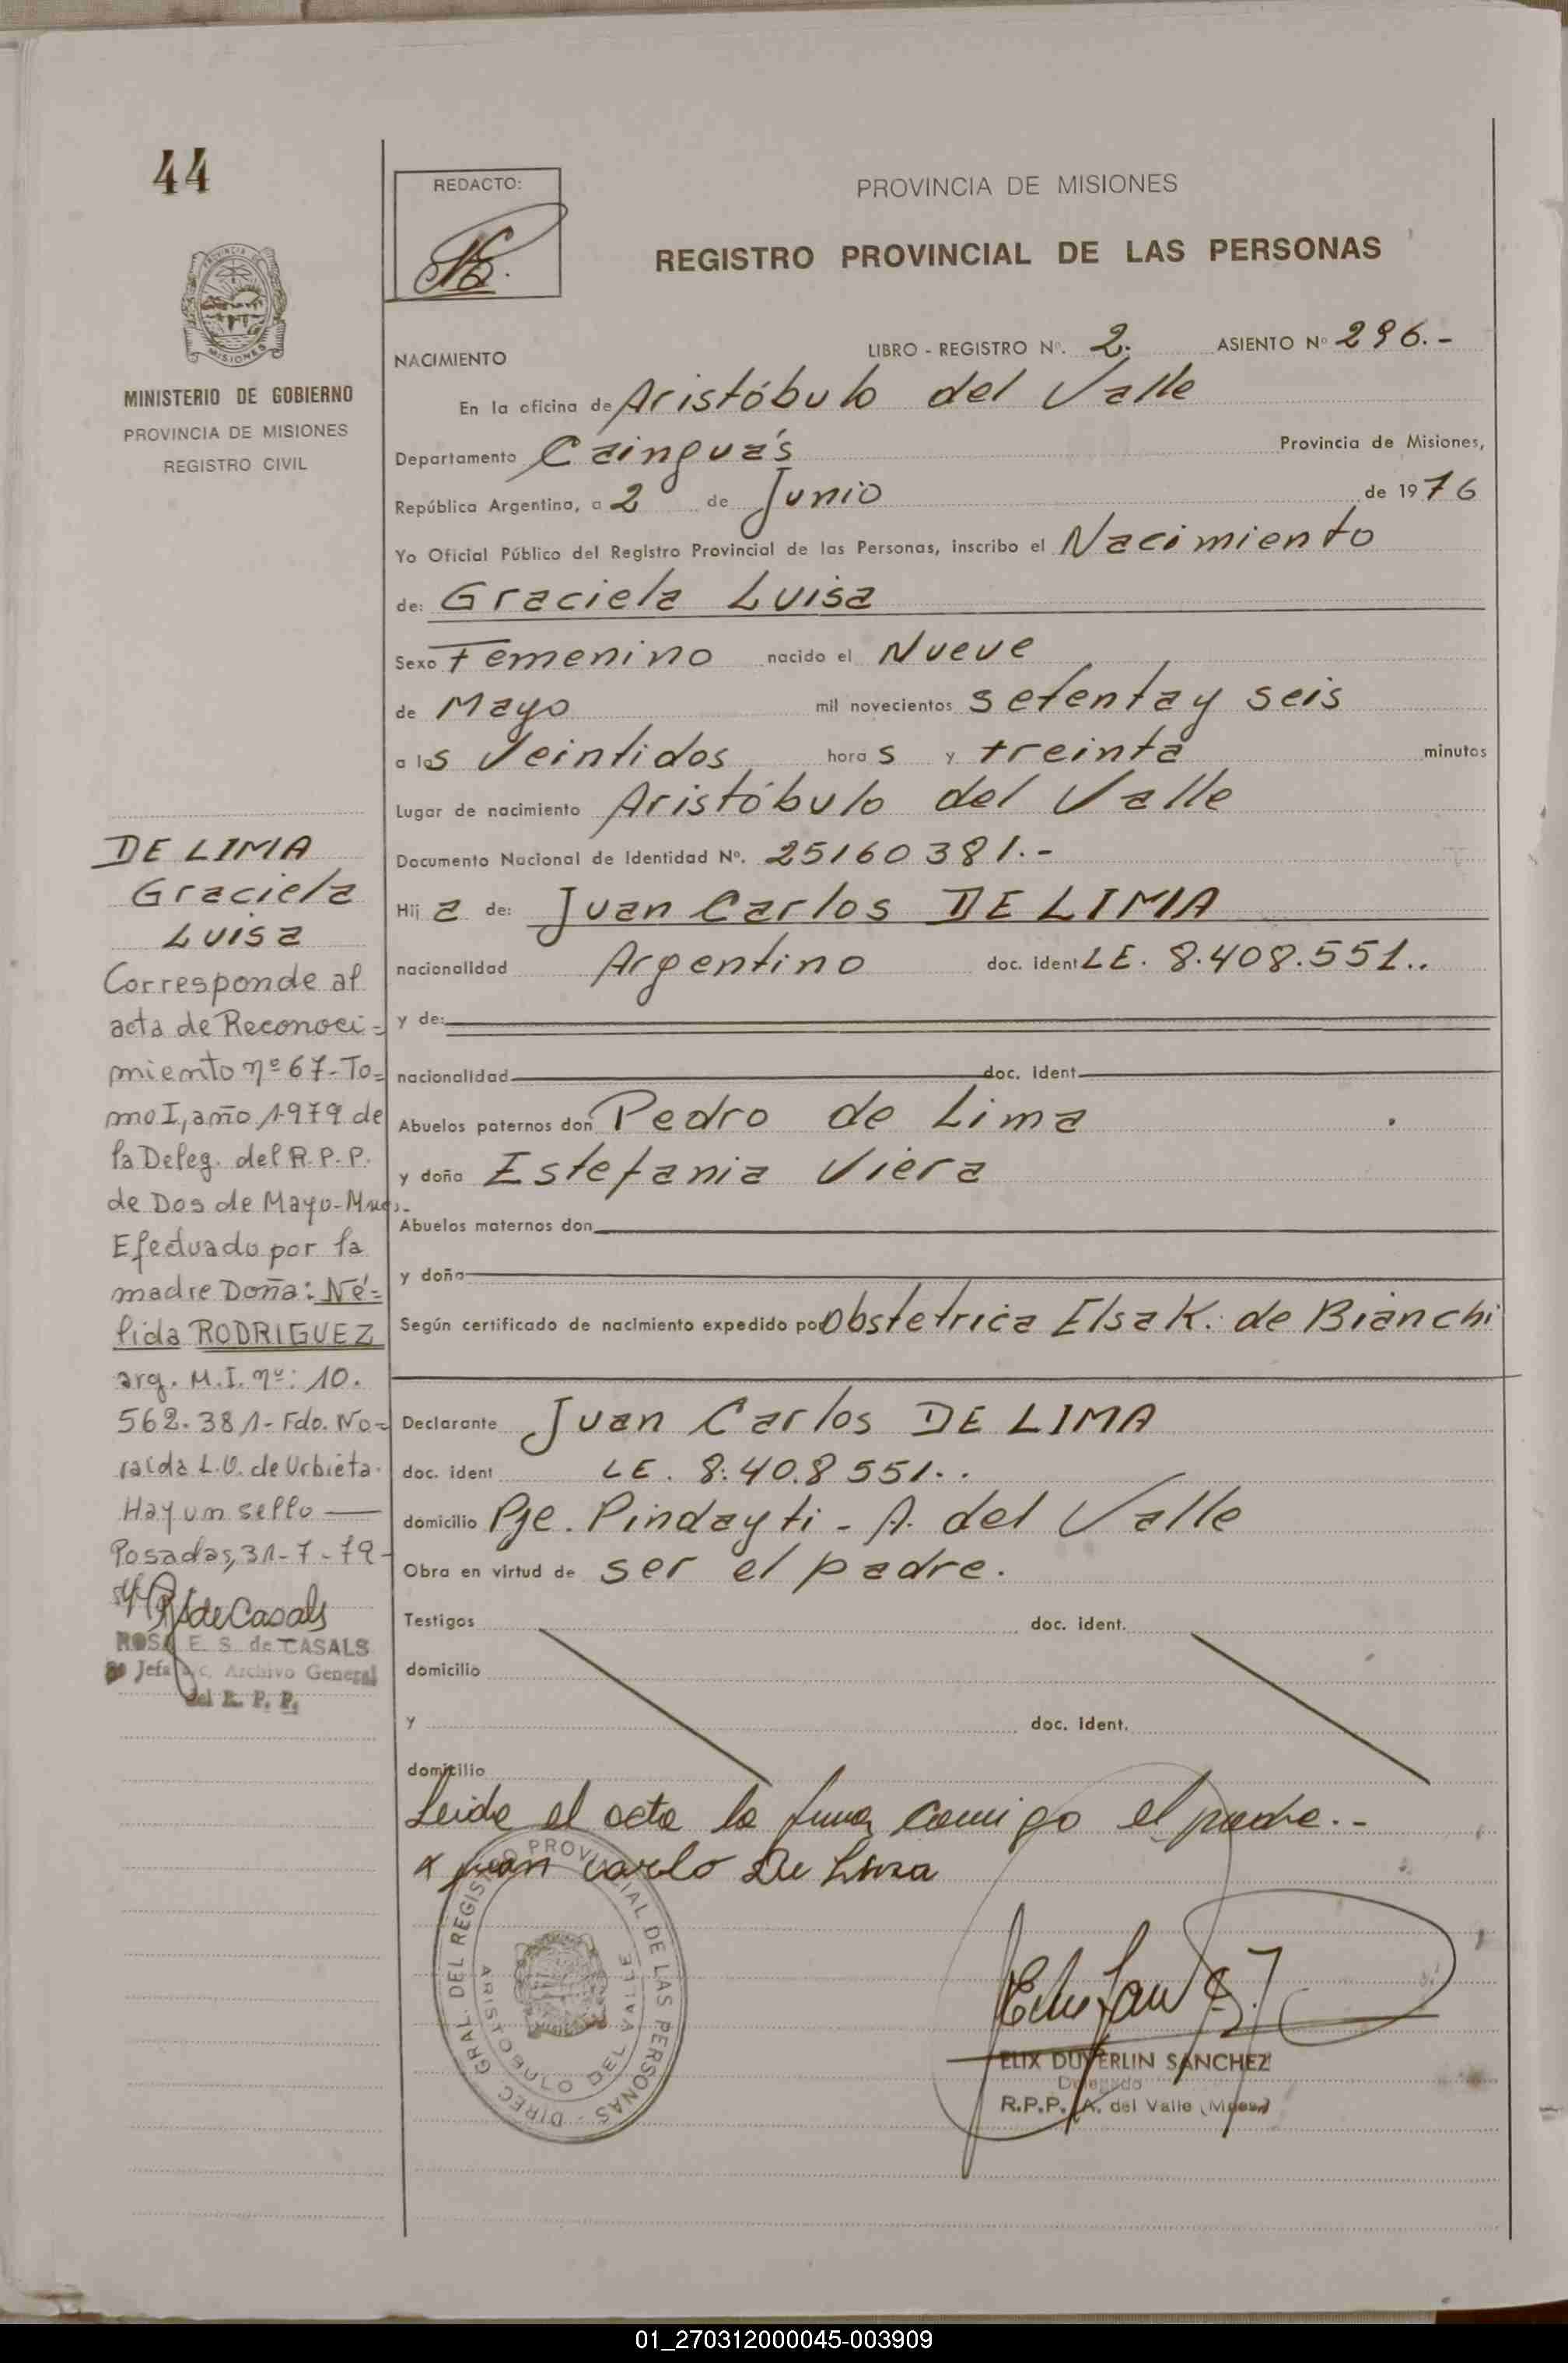 44
REDACTO:
PROVINCIA DE MISIONES
REGISTRO PROVINCIAL DE LAS PERSONAS
MISIONES
MINISTERIO DE GOBIERNO
PROVINCIA DE MISIONES
REGISTRO CIVIL
NACIMIENTO LIBRO - REGISTRO Nº. 2. ASIENTO Nº 296.-
En la oficina de Aristóbulo del Valle
Departamento Cainguás Provincia de Misiones,
República Argentina, a 2 de Junio de 1976
Yo Oficial Público del Registro Provincial de las Personas, inscribo el Nacimiento
de: Graciela Luisa
Sexo Femenino nacido el Nueve
de Mayo mil novecientos setenta y seis
a las Veintidos horas y treinta minutos
Lugar de nacimiento Aristóbulo del Valle
Documento Nacional de Identidad Nº. 25160381.-
Hija de: Juan Carlos DE LIMA
nacionalidad Argentino doc. ident LE. 8.408.551..
y de:
nacionalidad doc. ident
Abuelos paternos don Pedro de Lima
y doña Estefania Viera
Abuelos maternos don
y doña
Según certificado de nacimiento expedido por Obstetrica Elsa K. de Bianchi
Declarante Juan Carlos DE LIMA
doc. ident LE. 8.408551..
domicilio Pje. Pindayti - A. del Valle
Obra en virtud de ser el padre.
Testigos doc. ident.
domicilio
y doc. ident.
domicilio
Leida el acta la firma comigo el padre.-
x Juan Carlo De Lima
DIREC. GRAL. DEL REGISTRO PROVINCIAL DE LAS PERSONAS
ARISTOBULO DEL VALLE
ELIX DUVERLIN SANCHEZ
Delegado
R.P.P. A. del Valle (Mnes.)
DE LIMA
Graciela
Luisa
Corresponde al
acta de Reconoci=
miento nº 67-To=
mo I, año 1979 de
la Deleg. del R.P.P.
de Dos de Mayo-Mnes.-
Efectuado por la
madre Doña: Né=
lida RODRIGUEZ
arg. M.I. nº: 10.
562.381- Fdo. No=
ralda L.V. de Urbieta.
Hay un sello
Posadas, 31-7-79-
RSdeCasals
ROSA E. S. de CASALS
Jefa a/c. Archivo General
del R. P. P.
01_270312000045-003909